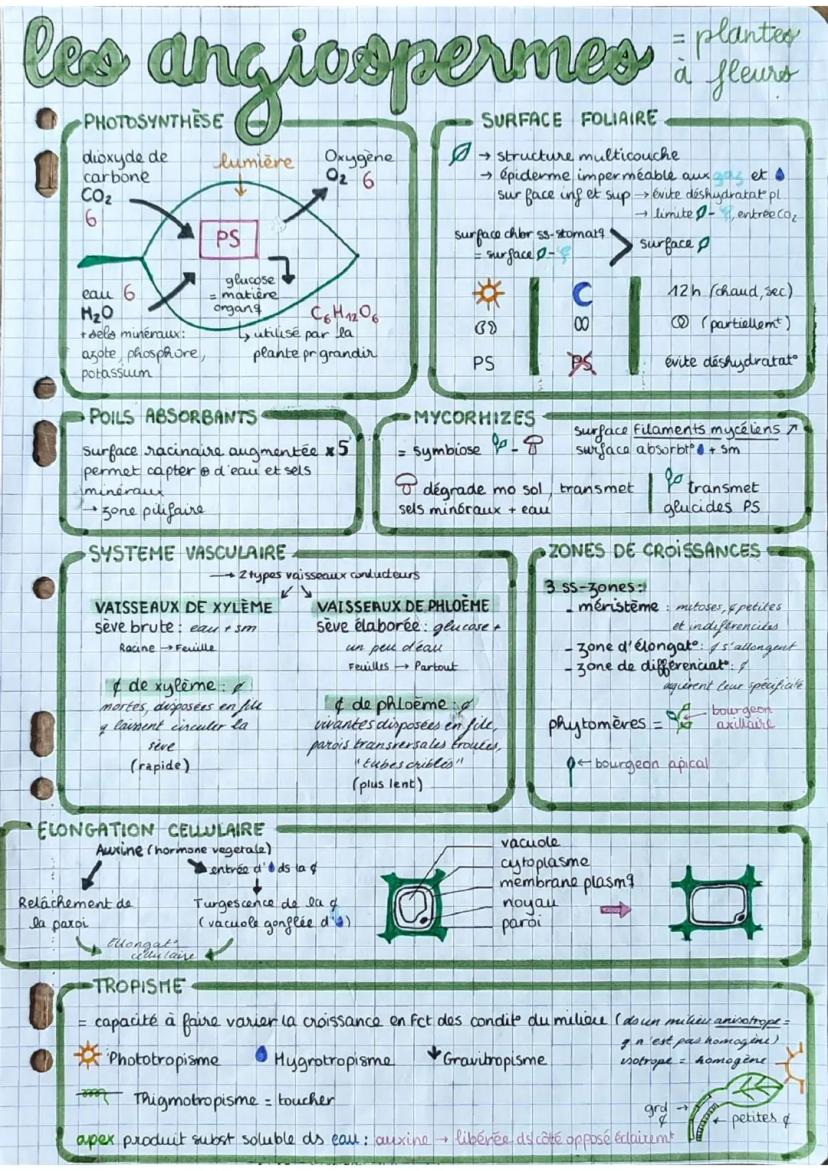 les angiospermes = plantes
à fleurs
PHOTOSYNTHÈSE
dioxyde de
carbone
CO₂
6
lumière
Oxygène
O₂ 6
PS
eau 6
H₂O
+ sels minéraux:
azote, phosphore,
potassium
glucose
= matière
organq
C₆H₁₂O₆
↳ utilisé par la
plante pr grandir
SURFACE FOLIAIRE
→ structure multicouche
→ épiderme imperméable aux gaz et
surface inf et sup → évite déshydratat° pl
→ limite - , entrée CO₂
surface chbr ss-stomatq
= surface -
> surface
12h (chaud, sec)
(partiellemt)
PS
PS
évite déshydratat°
POILS ABSORBANTS
surface racinaire augmentée x5
permet capter ⊕ d'eau et sels
minéraux
→ zone pilifaire
MYCORHIZES
= symbiose -
surface filaments mycéliens ↗
surface absorbt° + sm
dégrade mo sol, transmet
sels minéraux + eau
transmet
glucides PS
SYSTEME VASCULAIRE
→ 2 types vaisseaux conducteurs
VAISSEAUX DE XYLÈME
sève brute : eau + sm
Racine → Feuille
¢ de xylème : ¢
mortes, disposées en file
q laissent circuler la
sève
(rapide)
VAISSEAUX DE PHLOÈME
sève élaborée : glucose +
un peu d'eau
Feuilles → Partout
¢ de phloème : ¢
vivantes disposées en file,
parois transversales trouées,
"tubes criblés"
(plus lent)
ZONES DE CROISSANCES
3 ss-zones :
- méristème : mitoses, ¢ petites
et indifférenciées
- zone d'élongat° : ¢ s'allongent
- zone de différenciat° : ¢
aquièrent leur spécificité
phytomères =
← bourgeon
axillaire
← bourgeon apical
ELONGATION CELLULAIRE
Auxine (hormone vegetale)
entrée d' ds la ¢
Relâchement de
la paroi
Turgescence de la ¢
(vacuole gonflée d' )
Elongat°
cellulaire
vacuole
cytoplasme
membrane plasmq
noyau
paroi
TROPISME
= capacité à faire varier la croissance en fct des condit° du milieu (ds un milieu anisotrope =
q n'est pas homogène)
Phototropisme
Hygrotropisme
Gravitropisme
isotrope = homogène
Thigmotropisme = toucher
grd →
¢
← petites ¢
apex produit subst soluble ds eau : auxine → libérée ds côté opposé éclairemt